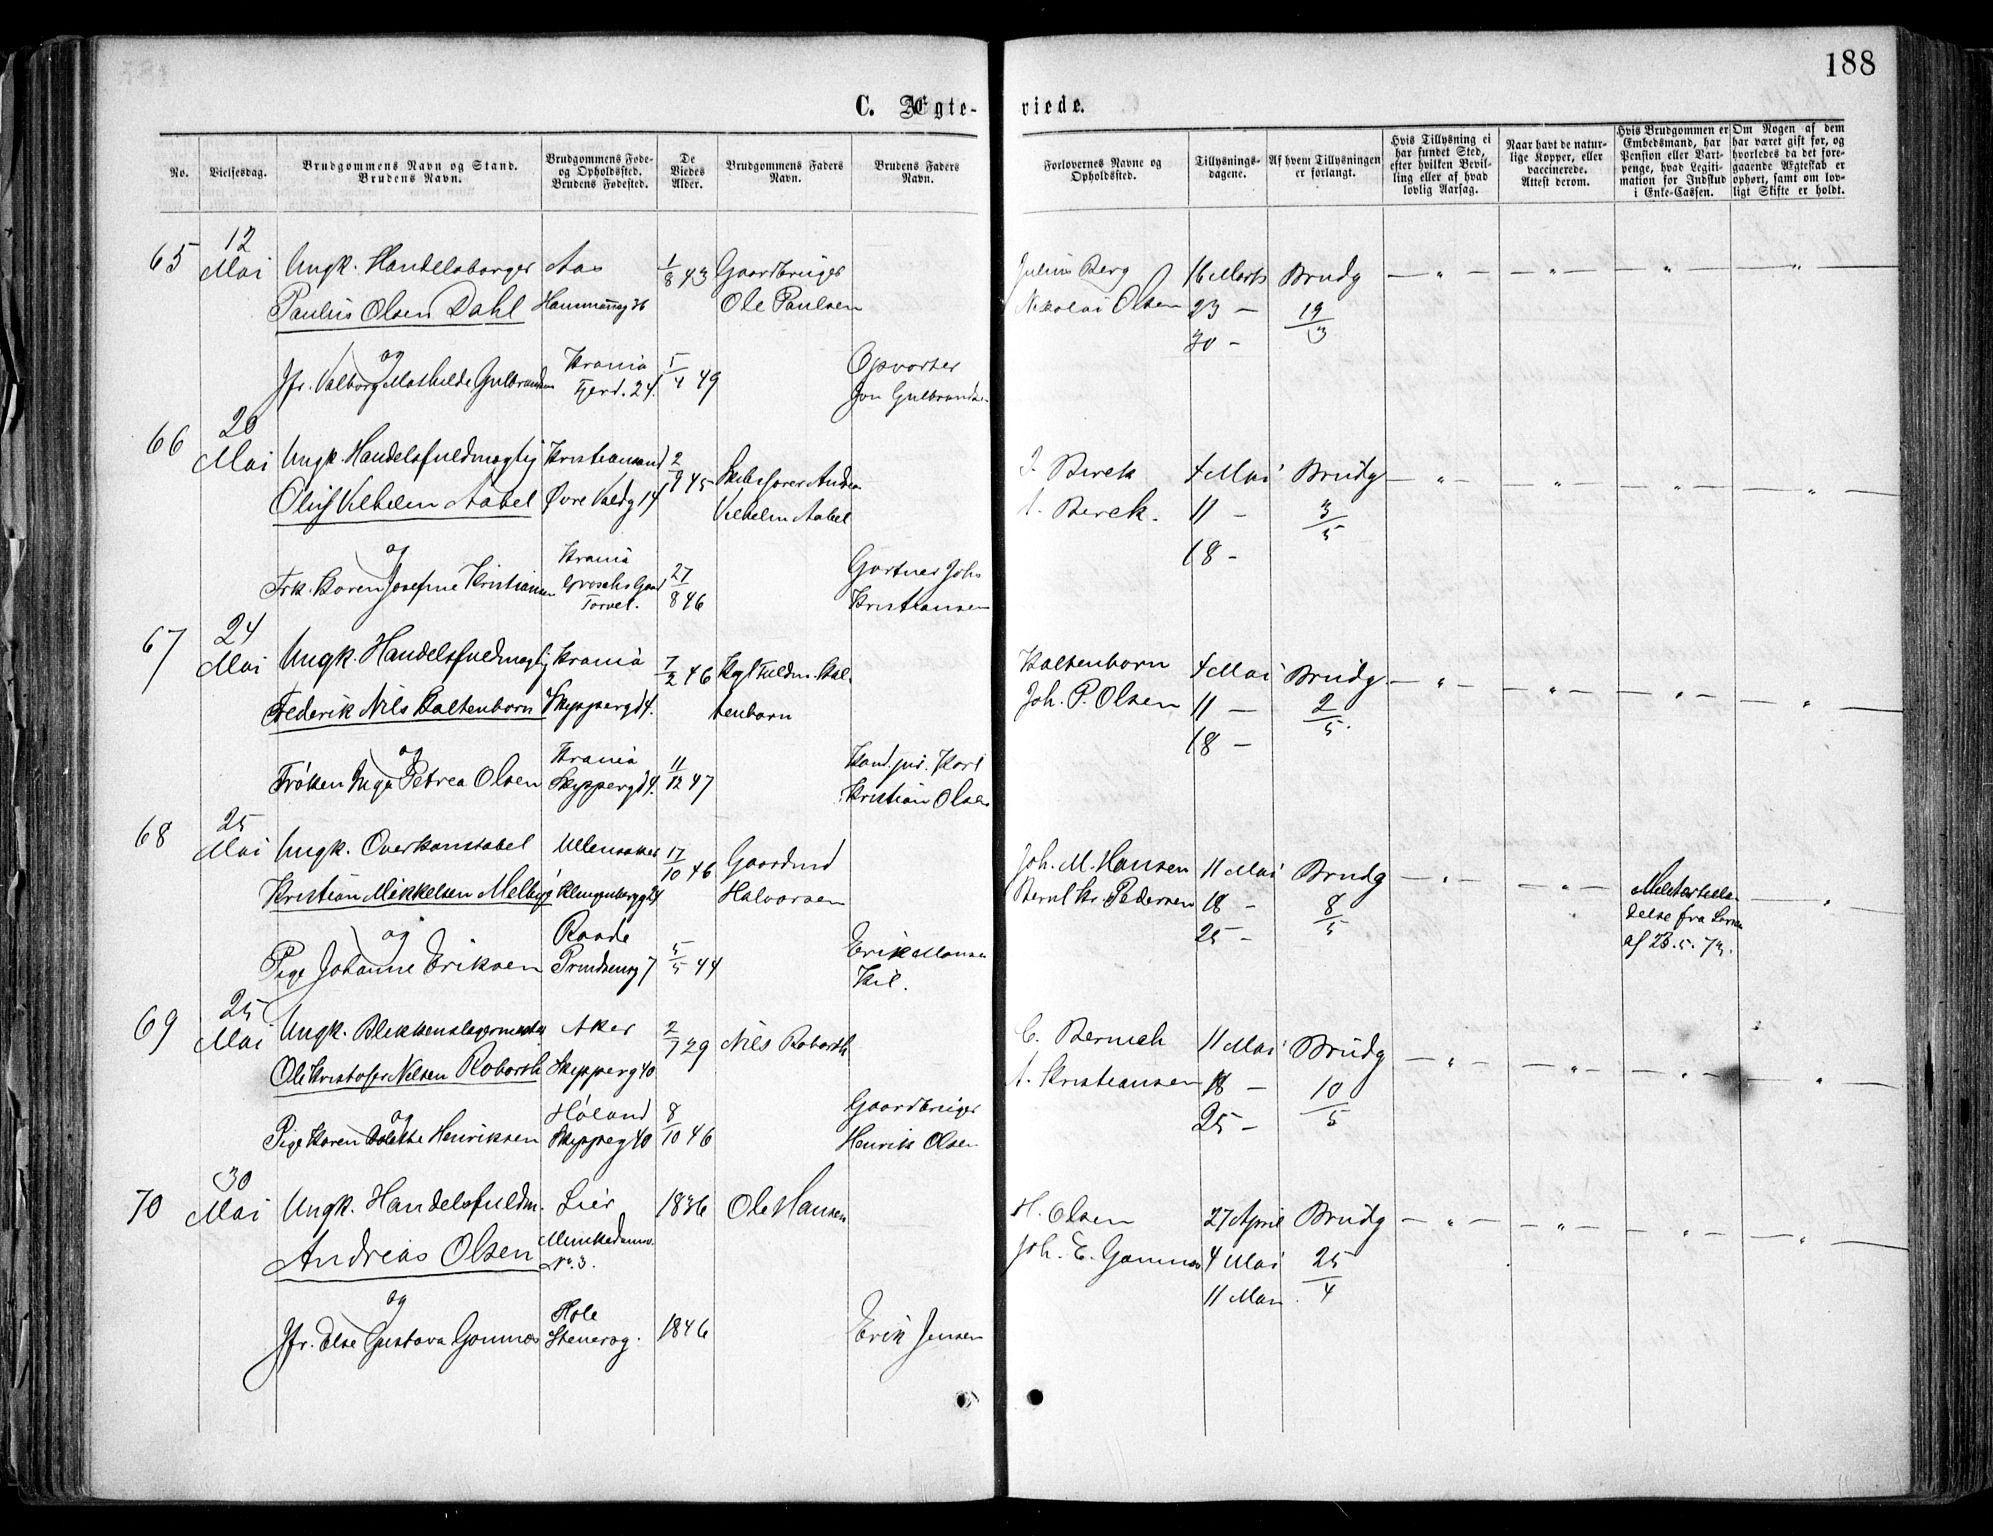 188
C. Ægte-
viede.
No.
Vielsesdag.
Brudgommens Navn og Stand.
Brudens Navn.
Brudgommens Føde-
og Opholdssted.
Brudens Fødested.
De
Viedes
Alder.
Brudgommens Faders
Navn.
Brudens Faders
Navn.
Forlovernes Navne og
Opholdssted.
Tillysnings-
dagene.
Af hvem Tillysningen
er forlangt.
Hvis Tillysning ei
har fundet Sted,
efter hvilken Bevil-
ling eller af hvad
lovlig Aarsag.
Naar havt de natur-
lige Kopper, eller
vaccinerede.
Attest derom.
Hvis Brudgommen er
Embedsmand, har
Pension eller Vart-
penge, hvad Legiti-
mation for Indskud
i Enke-Cassen.
Om Nogen af dem
har været gift før, og
hvorledes da det fore-
gaaende Ægteskab er
ophørt, samt om lov-
ligt Skifte er holdt.
65
12
Mai
Ungk. Handelsborger
Paulus Olsen Dahl
og
Jfr. Valborg Mathilde Gulbrandsen
Aas
Krania
Fjerd. 24.
1/8 43
5/4 49
Gaardbruger
Ole Paulsen
Opvarter
Jon Gulbrands
Julius Berg
Nikolai Olsen
16 Marts
23 —
30 —
Brudg
19/3
66
20
Mai
Ungk. Handelsfuldmægtig
Oluf Vilhelm Aabel
og
Frk. Karen Josefine Kristiansen
Kristiansand
Øvre Voldg 14
Krania
Groschs Gaard
Torvet.
2/9 45
27/8 46
Skibsfører Andrea
Vilhelm Aabel
Gartner Johs
Kristiansen
J. Berck
A. Berck.
4 Mai
11 —
18 —
Brudg
3/5
67
24
Mai
Ungk. Handelsfuldmægtig
Frederik Nils Kaltenborn
og
Frøken Inga Petrea Olsen
Krania
Skipperg 4.
Krania
Skipperg 4.
7/2 46
11/12 47
Kgl Fuldm. Kal-
tenborn
Kand. jur. Karl
Kristian Olsen
Kaltenborn
Joh. P. Olsen
4 Mai
11 —
18 —
Brudg
2/5.
68
25
Mai
Ungk. Overkonstabel
Kristian Mikkelsen Melby
og
Pige Johanne Eriksen
Ullensaker
Klingenbergg 24
Raade
Prindsensg 7
17/10 46
5/5 44
Gaardmd
Halvorsen
Erik Monsen
Kil.
Joh. M. Hansen
Bernt Kr. Pedersen
11 Mai
18 —
25 —
Brudg
8/5
delse fra
af 23.5.73.
69
25
Mai
Ungk. Blikkenslagermester
Ole Kristofer Nilsen Robarth
og
Pige Karen Henriksen
Aker
Skipperg 40
Høland
Skipperg 40
2/7 29
8/10 46
Nils Robarth
Gaardbruger
Henrik Olsen
A. Kristiansen
11 Mai
18 —
25 —
Brudg
10/5
70
30
Mai
Ungk. Handelsfuldm.
Andreas Olsen
og
Jfr. Else Gustava Gomnæs
Lier
Munkedamsv.
No. 3.
Hole
Stenersg.
1836
1846
Ole Hansen
Erik Jensen
H. Olsen
Joh. E. Gomnæs
27 April
4 Mai
11 Mai
Brudg
25/4